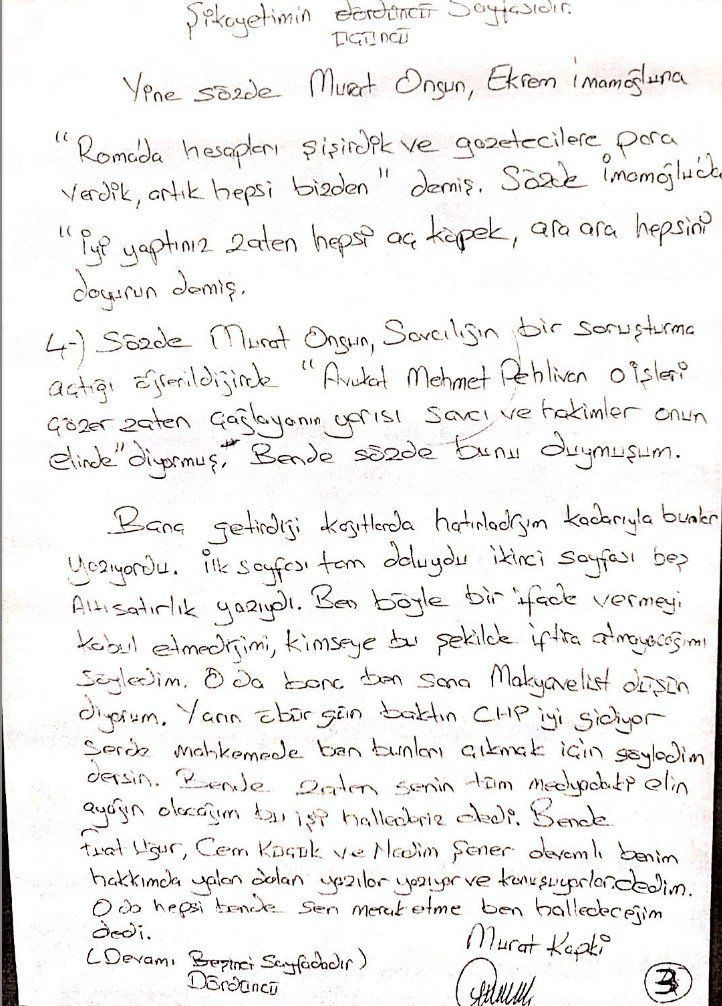 Şikayetimin dördüncü Sayfasıdır.
ÜÇÜNCÜ
Yine sözde Murat Ongun, Ekrem İmamoğluna
"Roma'da hesapları şişirdik ve gazetecilere para
verdik, artık hepsi bizden" demiş. Sözde İmamoğlu'da
"iyi yaptınız zaten hepsi aç köpek, ara ara hepsini
doyurun demiş.
4-) Sözde Murat Ongun, Savcılığın bir soruşturma
açtığı öğrenildiğinde "Avukat Mehmet Pehlivan o işleri
çözer zaten Çağlayanın yarısı savcı ve hakimler onun
elinde" diyormuş. Bende sözde bunu duymuşum.
Bana getirdiği kağıtlarda hatırladığım kadarıyla bunlar
yazıyordu. İlk sayfası tam doluydu ikinci sayfası beş
Altı satırlık yazıydı. Ben böyle bir ifade vermeyi
kabul etmediğimi, kimseye bu şekilde iftira atmayacağımı
söyledim. O da bana ben sana Makyavelist düşün
diyorum. Yarın öbür gün baktın CHP iyi gidiyor
sende mahkemede ben bunları çıkmak için söyledim
dersin. Bende zaten senin tüm medyadaki elin
ayağın olacağım bu işi hallederiz dedi. Bende
Fuat Uğur, Cem Küçük ve Nedim Şener devamlı benim
hakkımda yalan dolan yazılar yazıyor ve konuşuyorlar dedim.
O da hepsi bende sen merak etme ben halledeceğim
dedi.
Murat Kapki
(Devamı Beşinci Sayfadadır)
Dördüncü
3